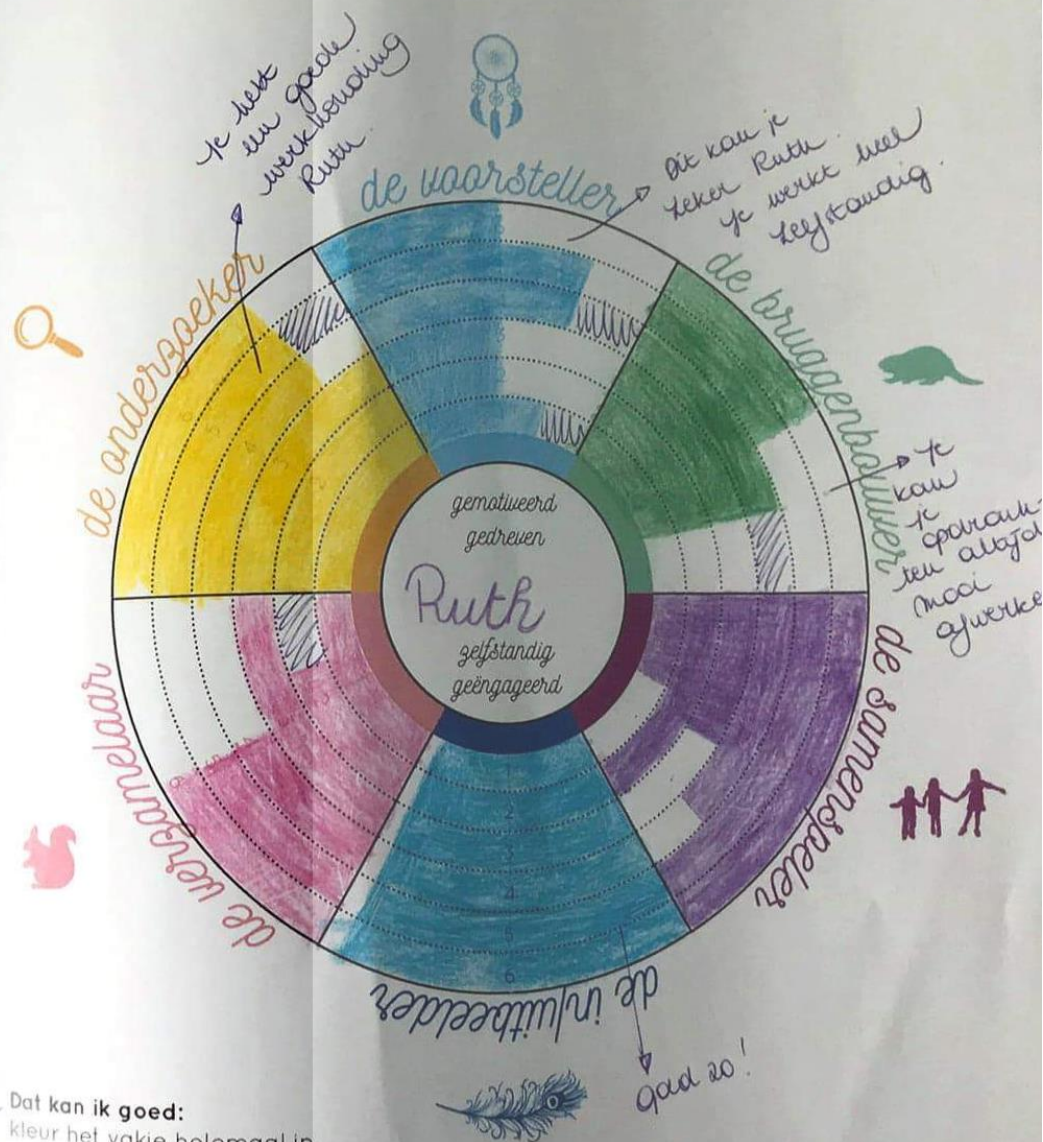 Je hebt
een goede
werkhouding
Ruth.
de voorsteller
Dit kan je
zeker Ruth.
Je werkt heel
zelfstandig.
de onderzoeker
de bruggenbouwer
Je
kan
je
opdrach-
ten altijd
mooi
afwerke
gemotiveerd
gedreven
Ruth
zelfstandig
geëngageerd
de verzamelaar
de samenspeler
1
2
3
4
5
6
de in/uitbeelder
Goed zo!
Dat kan ik goed:
kleur het vakje helemaal in